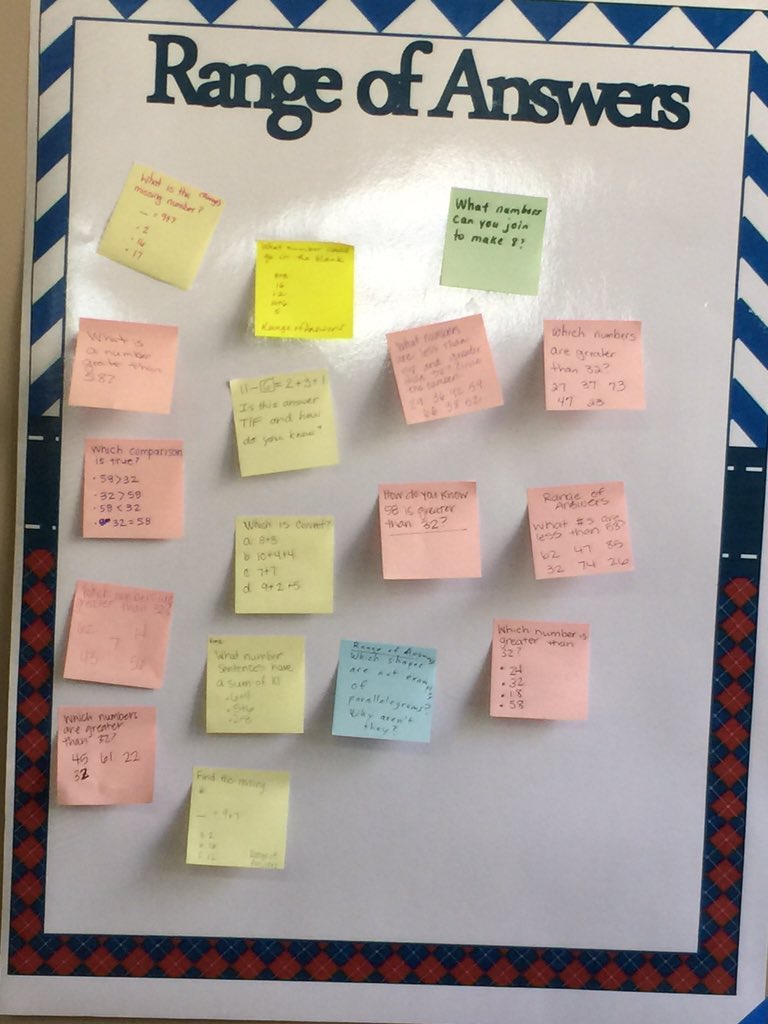 Range of Answers
What is the
missing number?
_ = 9+7
• 2
• 16
• 17
What number could
go in the blank
16
12
5
Range of Answers
What numbers
can you join
to make 8?
What is
a number
greater than
58?
11-6=2+3+1
Is this answer
T/F and how
do you know?
What numbers
are less than
and greater
than
29 36 92 59
66 38 52
Which numbers
are greater
than 32?
27 37 73
47 23
Which comparison
is true?
• 58>32
• 32>58
• 58<32
• 32=58
Which is correct?
a 8+8
b 10+4+4
c 7+7
d 9+2+5
How do you know
58 is greater
than 32?
Range of
Answers
What #s are
less than 58?
62 47 85
32 74 26
Which numbers are
greater than 32?
62 7 14
45 58
What number
sentences have
a sum of 10
Range of Answers
Which shapes
are not
of
parallelograms?
Why aren't
they?
Which number is
greater than
32?
• 24
• 32
• 18
• 58
Which numbers
are greater
than 32?
45 61 22
32
Find the missing
#
_ = 9+7
Range of
Answers